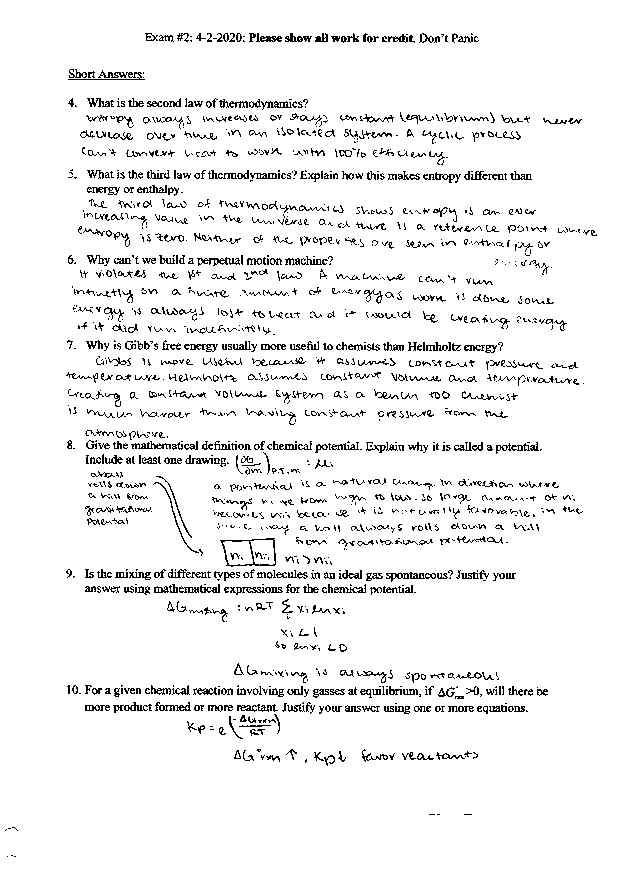 Exam #2: 4-2-2020: Please show all work for credit. Don't Panic
Short Answers:
4. What is the second law of thermodynamics?
entropy always increases or stays constant (equilibrium) but never
decrease over time in an isolated system. A cyclic process
can't convert heat to work with 100% efficiency.
5. What is the third law of thermodynamics? Explain how this makes entropy different than
energy or enthalpy.
The third law of thermodynamics shows entropy is an ever
increasing value in the universe and there is a reference point where
entropy is zero. Neither of the properties are seen in enthalpy or
energy.
6. Why can't we build a perpetual motion machine?
It violates the 1st and 2nd law. A machine can't run
infinetly on a finite amount of energy as work is done some
energy is always lost to heat and it would be creating energy
if it did run indefinitely.
7. Why is Gibb's free energy usually more useful to chemists than Helmholtz energy?
Gibbs is more useful because it assumes constant pressure and
temperature. Helmholtz assumes constant volume and temperature.
Creating a constant volume system as a bench top chemist
is much harder then having constant pressure from the
atmosphere.
8. Give the mathematical definition of chemical potential. Explain why it is called a potential.
Include at least one drawing. (∂G/∂n)P,T,n = μi
a ball
rolls down
a hill from
gravitational
potental
a pontential is a natural change in direction where
things move from high to low. so large amount of ni
becomes nii because it is naturally favorable, in the
same way a ball always rolls down a hill
from gravitational potental.
ni nii ni > nii
9. Is the mixing of different types of molecules in an ideal gas spontaneous? Justify your
answer using mathematical expressions for the chemical potential.
ΔGmixing = nRT Σ xi ln xi
xi < 1
so ln xi < 0
ΔGmixing is always spontaneous!
10. For a given chemical reaction involving only gasses at equilibrium, if ΔG°rxn >0, will there be
more product formed or more reactant. Justify your answer using one or more equations.
Kp = e(-ΔG°rxn/RT)
ΔG°rxn ↑, Kp↓ favor reactants